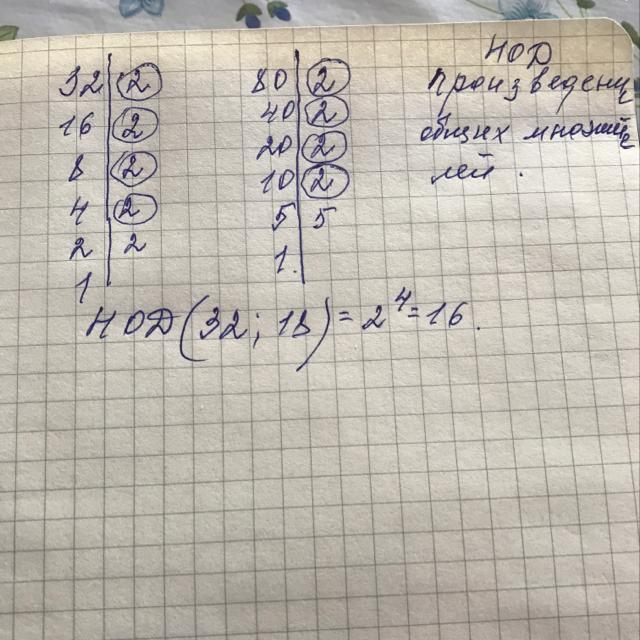 32 | 2
16 | 2
8 | 2
4 | 2
2 | 2
1
80 | 2
40 | 2
20 | 2
10 | 2
5 | 5
1.
НОД
произведени
общих множит
лей.
НОД(32; 18) = 2^4 = 16.